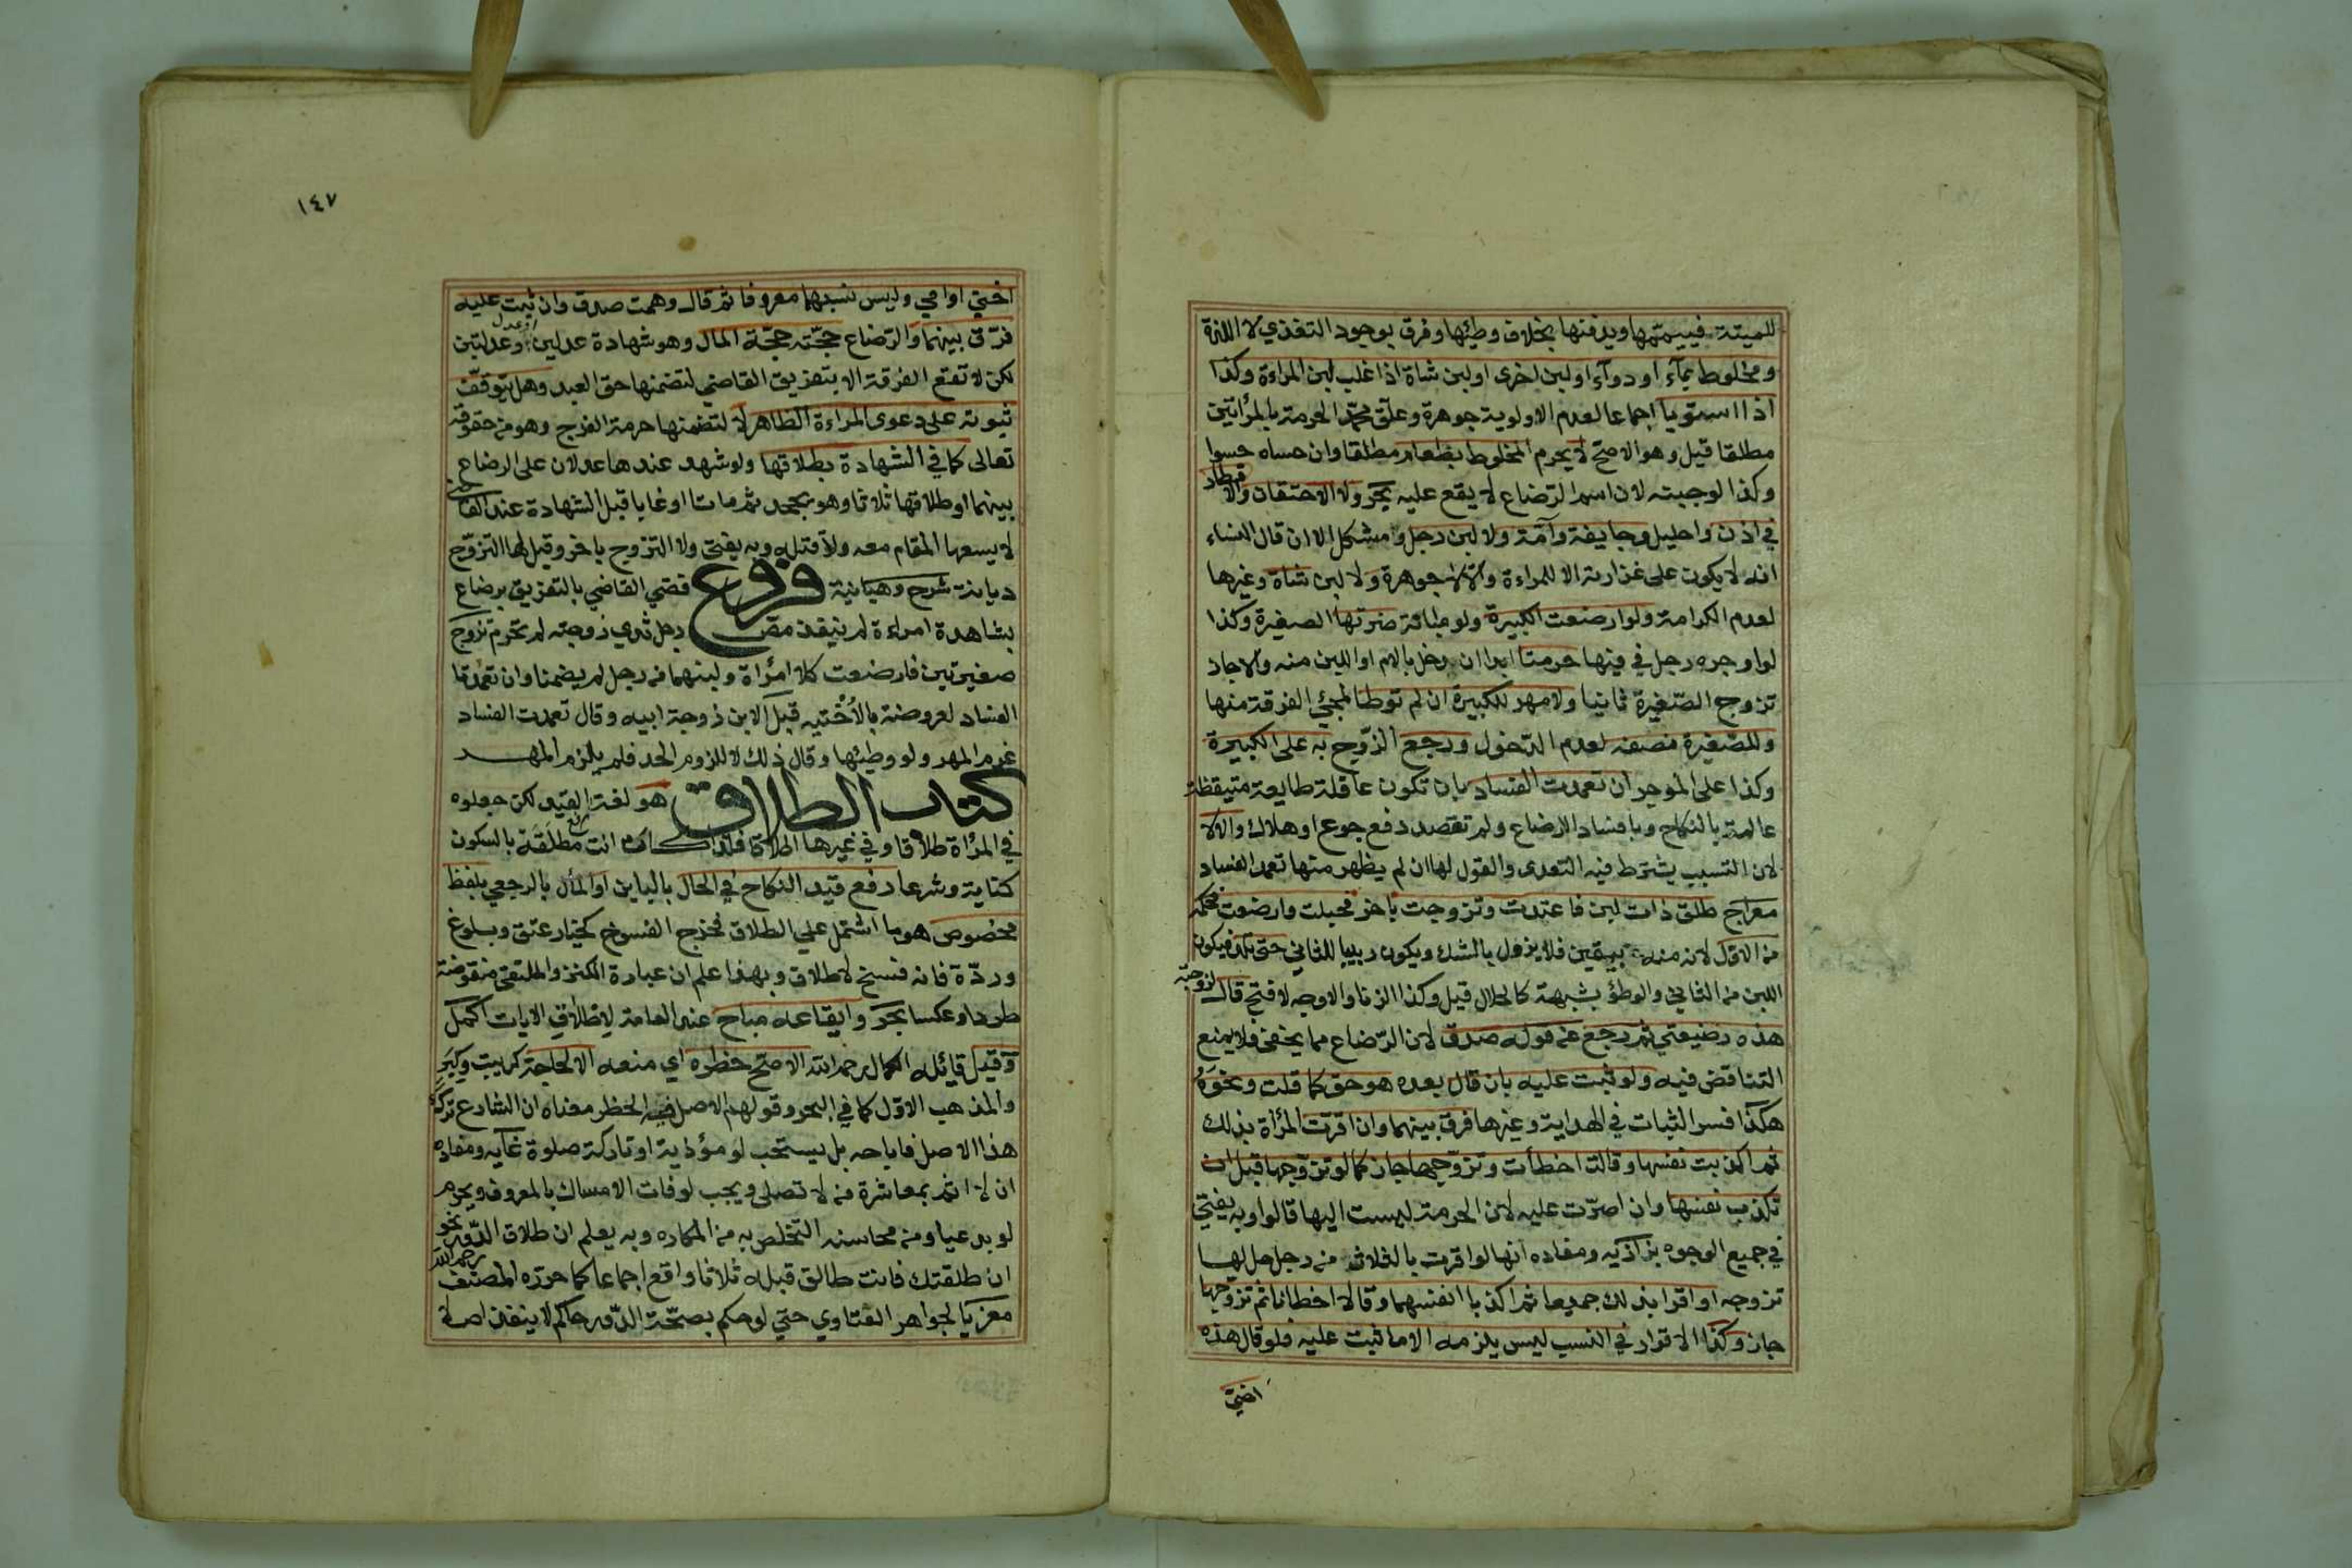 للميتة فييممها ويدفنها بخلاف وطئها وفرق بوجود التغذي لا اللذة
ومخلوط بمآء او دوآء او لبن اخرى او لبن شاة اذا غلب لبن المراءة وكذا
اذا استويا اجماعا لعدم الاولوية جوهرة وعلق محمد الحرمة بالمرأتين
مطلقا قيل وهو الاصح لا يحرم المخلوط بطعام مطلقا وان حساه حسوا
وكذا لو جبنه لان اسم الرضاع لا يقع عليه بحر ولا الاحتقان والاقطار
في اذن واحليل وجايفة وآمة ولا لبن رجل ومشكل الا ان قال النساء
انه لا يكون على غزارته الا للمراءة والا لا جوهرة ولا لبن شاة وغيرها
لعدم الكرامة ولو ارضعت الكبيرة ولو مبانة ضرتها الصغيرة وكذا
لو اوجره رجل في فيها حرمتا ابدا ان دخل بالام او اللبن منه والا جاز
تزوج الصغيرة ثانيا ولا مهر للكبيرة ان لم توطا لمجئ الفرقة منها
وللصغيرة نصفه لعدم الدخول ورجع الزوج به على الكبيرة
وكذا على الموجر ان تعمدت الفساد بان تكون عاقلة طايعة متيقظة
عالمة بالنكاح وبافساد الارضاع ولم تقصد دفع جوع او هلاك والا لا
لان التسبب يشترط فيه التعدى والقول لها ان لم يظهر منها تعمد الفساد
معراج طلق ذات لبن فاعتدت وتزوجت باخر فحبلت وارضعت فحكمه
من الاول لانه منه بيقين فلا يزول بالشك ويكون ربيبا للثاني حتى تلد فيكون
اللبن من الثاني والوطؤ بشبهة كالحلال قيل وكذا الزنا والاوجه لا فتح قال لزوجته
هذه رضيعتي ثم رجع عن قوله صدق لان الرضاع مما يخفى فلا يمنع
التناقض فيه ولو ثبت عليه بان قال بعده هو حق كما قلت ونحوه
هكذا فسر الثبات في الهداية وغيرها فرق بينهما وان اقرت المرأة بذلك
ثم اكذبت نفسها وقالت اخطأت وتزوجها جاز كما لو تزوجها قبل ان
تكذب نفسها وان اصرت عليه لان الحرمة ليست اليها قالوا وبه يفتي
في جميع الوجوه بزازية ومفاده انها لو اقرت بالثلاث من رجل حل لها
تزوجه او اقرا بذلك جميعا ثم اكذبا انفسهما وقالا اخطانا ثم تزوجها
جاز وكذا الاقرار في النسب ليس يلزمه الا ما ثبت عليه فلو قال هذه
اختي
١٤٧
اختي او امي وليس نسبها معروفا ثم قال وهمت صدق وان ثبت عليه
فرق بينهما والرضاع حجته حجة المال وهو شهادة عدلين او عدل وعدلتين
لكن لا تقع الفرقة الا بتفريق القاضي لتضمنها حق العبد وهل يتوقف
ثبوته على دعوى المراءة الظاهر لا لتضمنها حرمة الفرج وهو من حقوقه
تعالى كما في الشهادة بطلاقها ولو شهد عندها عدلان على الرضاع
بينهما او طلاقها ثلاثا وهو يجحد ثم ماتا او غابا قبل الشهادة عند القاضي
لا يسعها المقام معه ولا قتله وبه يفتى ولا التزوج باخر وقيل لها التزوج
ديانة شرح وهبانية فروع قضي القاضي بالتفريق برضاع
بشاهدة امراءة لم ينفذ مص رجل ثدي زوجته لم تحرم تزوج
صغيرتين فارضعت كلا امرأة ولبنهما من رجل لم يضمنا وان تعمدتا
الفساد لعروضه بالأختيه قبل الابن زوجة ابيه وقال تعمدت الفساد
غرم المهر ولو وطئها وقال ذلك لا للزوم الحد فلم يلزم المهر
كتاب الطلاق هو لغة رفع القيد لكن جعلوه
في المرأة طلاقا وفي غيرها اطلاقا فلذا كان انت مطلقة بالسكون
كناية وشرعا رفع قيد النكاح في الحال بالباين او المأل بالرجعي بلفظ
مخصوص هو ما اشتمل على الطلاق فخرج الفسوخ كخيار عتق وبلوغ
وردة فانه فسخ لا طلاق وبهذا علم ان عبارة الكنز والملتقى منقوضة
طردا وعكسا بحر وايقاعه مباح عند العامة لاطلاق الايات اكمل
وقيل قائله الكمال رحمه الله الاصح حظره اي منعه الا لحاجة كريبة وكبر
والمذهب الاول كما في البحر وقولهم الاصل فيه الحظر معناه ان الشارع ترك
هذا الاصل فاباحه بل يستحب لو مؤذية او تاركة صلوة غايه ومفاده
ان لا اثم بمعاشرة من لا تصلى ويجب لو فات الامساك بالمعروف ويحرم
لو بدعيا ومن محاسنه التخلص به من المكاره وبه يعلم ان طلاق الدور نحو
ان طلقتك فانت طالق قبله ثلاثا واقع اجماعا كما حرره المصنف رحمه الله
معزيا لجواهر الفتاوي حتي لو حكم بصحة الدور حاكم لا ينفذ اصلا